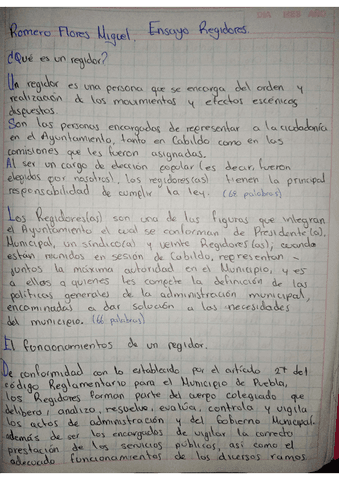 Romero Flores Miguel. Ensayo Regidores.
¿Qué es un regidor?
Un regidor es una persona que se encarga del orden y
realización de los movimientos y efectos escénicos
dispuestos.
Son las personas encargadas de representar a la ciudadanía
en el Ayuntamiento, tanto en Cabildo como en las
comisiones que les fueron asignadas.
Al ser un cargo de elección popular (es decir, fueron
elegidos por nosotros), los regidores(as) tienen la principal
responsabilidad de cumplir la ley. (68 palabras)
Los Regidores(as) son una de las figuras que integran
el Ayuntamiento el cual se conforman de Presidente(a).
Municipal, un síndico(a) y veinte Regidores(as); cuando
están reunidos en sesión de Cabildo, representan -
juntos la máxima autoridad en el Municipio, y es
a ellos a quienes les compete la definición de las
políticas generales de la administración municipal,
encaminadas a dar solución a las necesidades
del municipio. (66 palabras)
El funcionamientos de un regidor.
De conformidad con lo establecido por el artículo 27 del
código Reglamentario para el Municipio de Puebla,
los Regidores forman parte del cuerpo colegiado que
delibera, analiza, resuelve, evalúa, controla y vigila
los actos de administración y del Gobierno Municipal.
además de ser los encargados de vigilar la correcta
prestación de los servicios públicos, así como el
adecuado funcionamientos de los diversos ramos